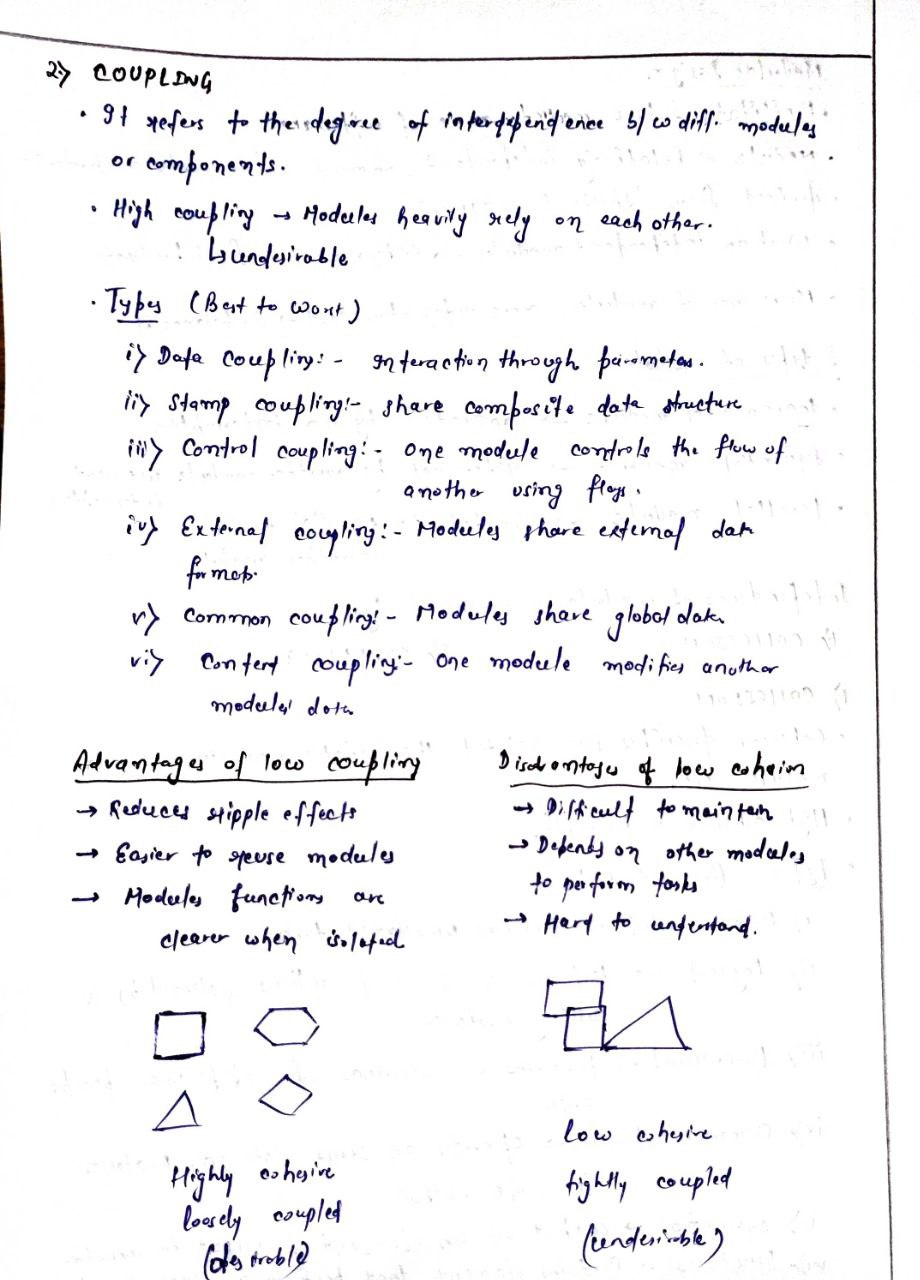 2) COUPLING
• It refers to the degree of interdependence b/w diff. modules
or components.
• High coupling → Modules heavily rely on each other.
↳ undesirable
• Types (Best to worst)
i) Data coupling:- Interaction through parameters.
ii) Stamp coupling:- share composite data structure
iii) Control coupling:- One module controls the flow of
another using flags.
iv) External coupling:- Modules share external data
formats.
v) Common coupling:- Modules share global data
vi) Content coupling:- One module modifies another
modules' data
Advantages of low coupling
→ Reduces ripple effects
→ Easier to reuse modules
→ Modules functions are
clearer when isolated
Disadvantages of low cohesion
→ Difficult to maintain
→ Depends on other modules
to perform tasks
→ Hard to understand.
Highly cohesive
loosely coupled
(desirable)
low cohesive
tightly coupled
(undesirable)